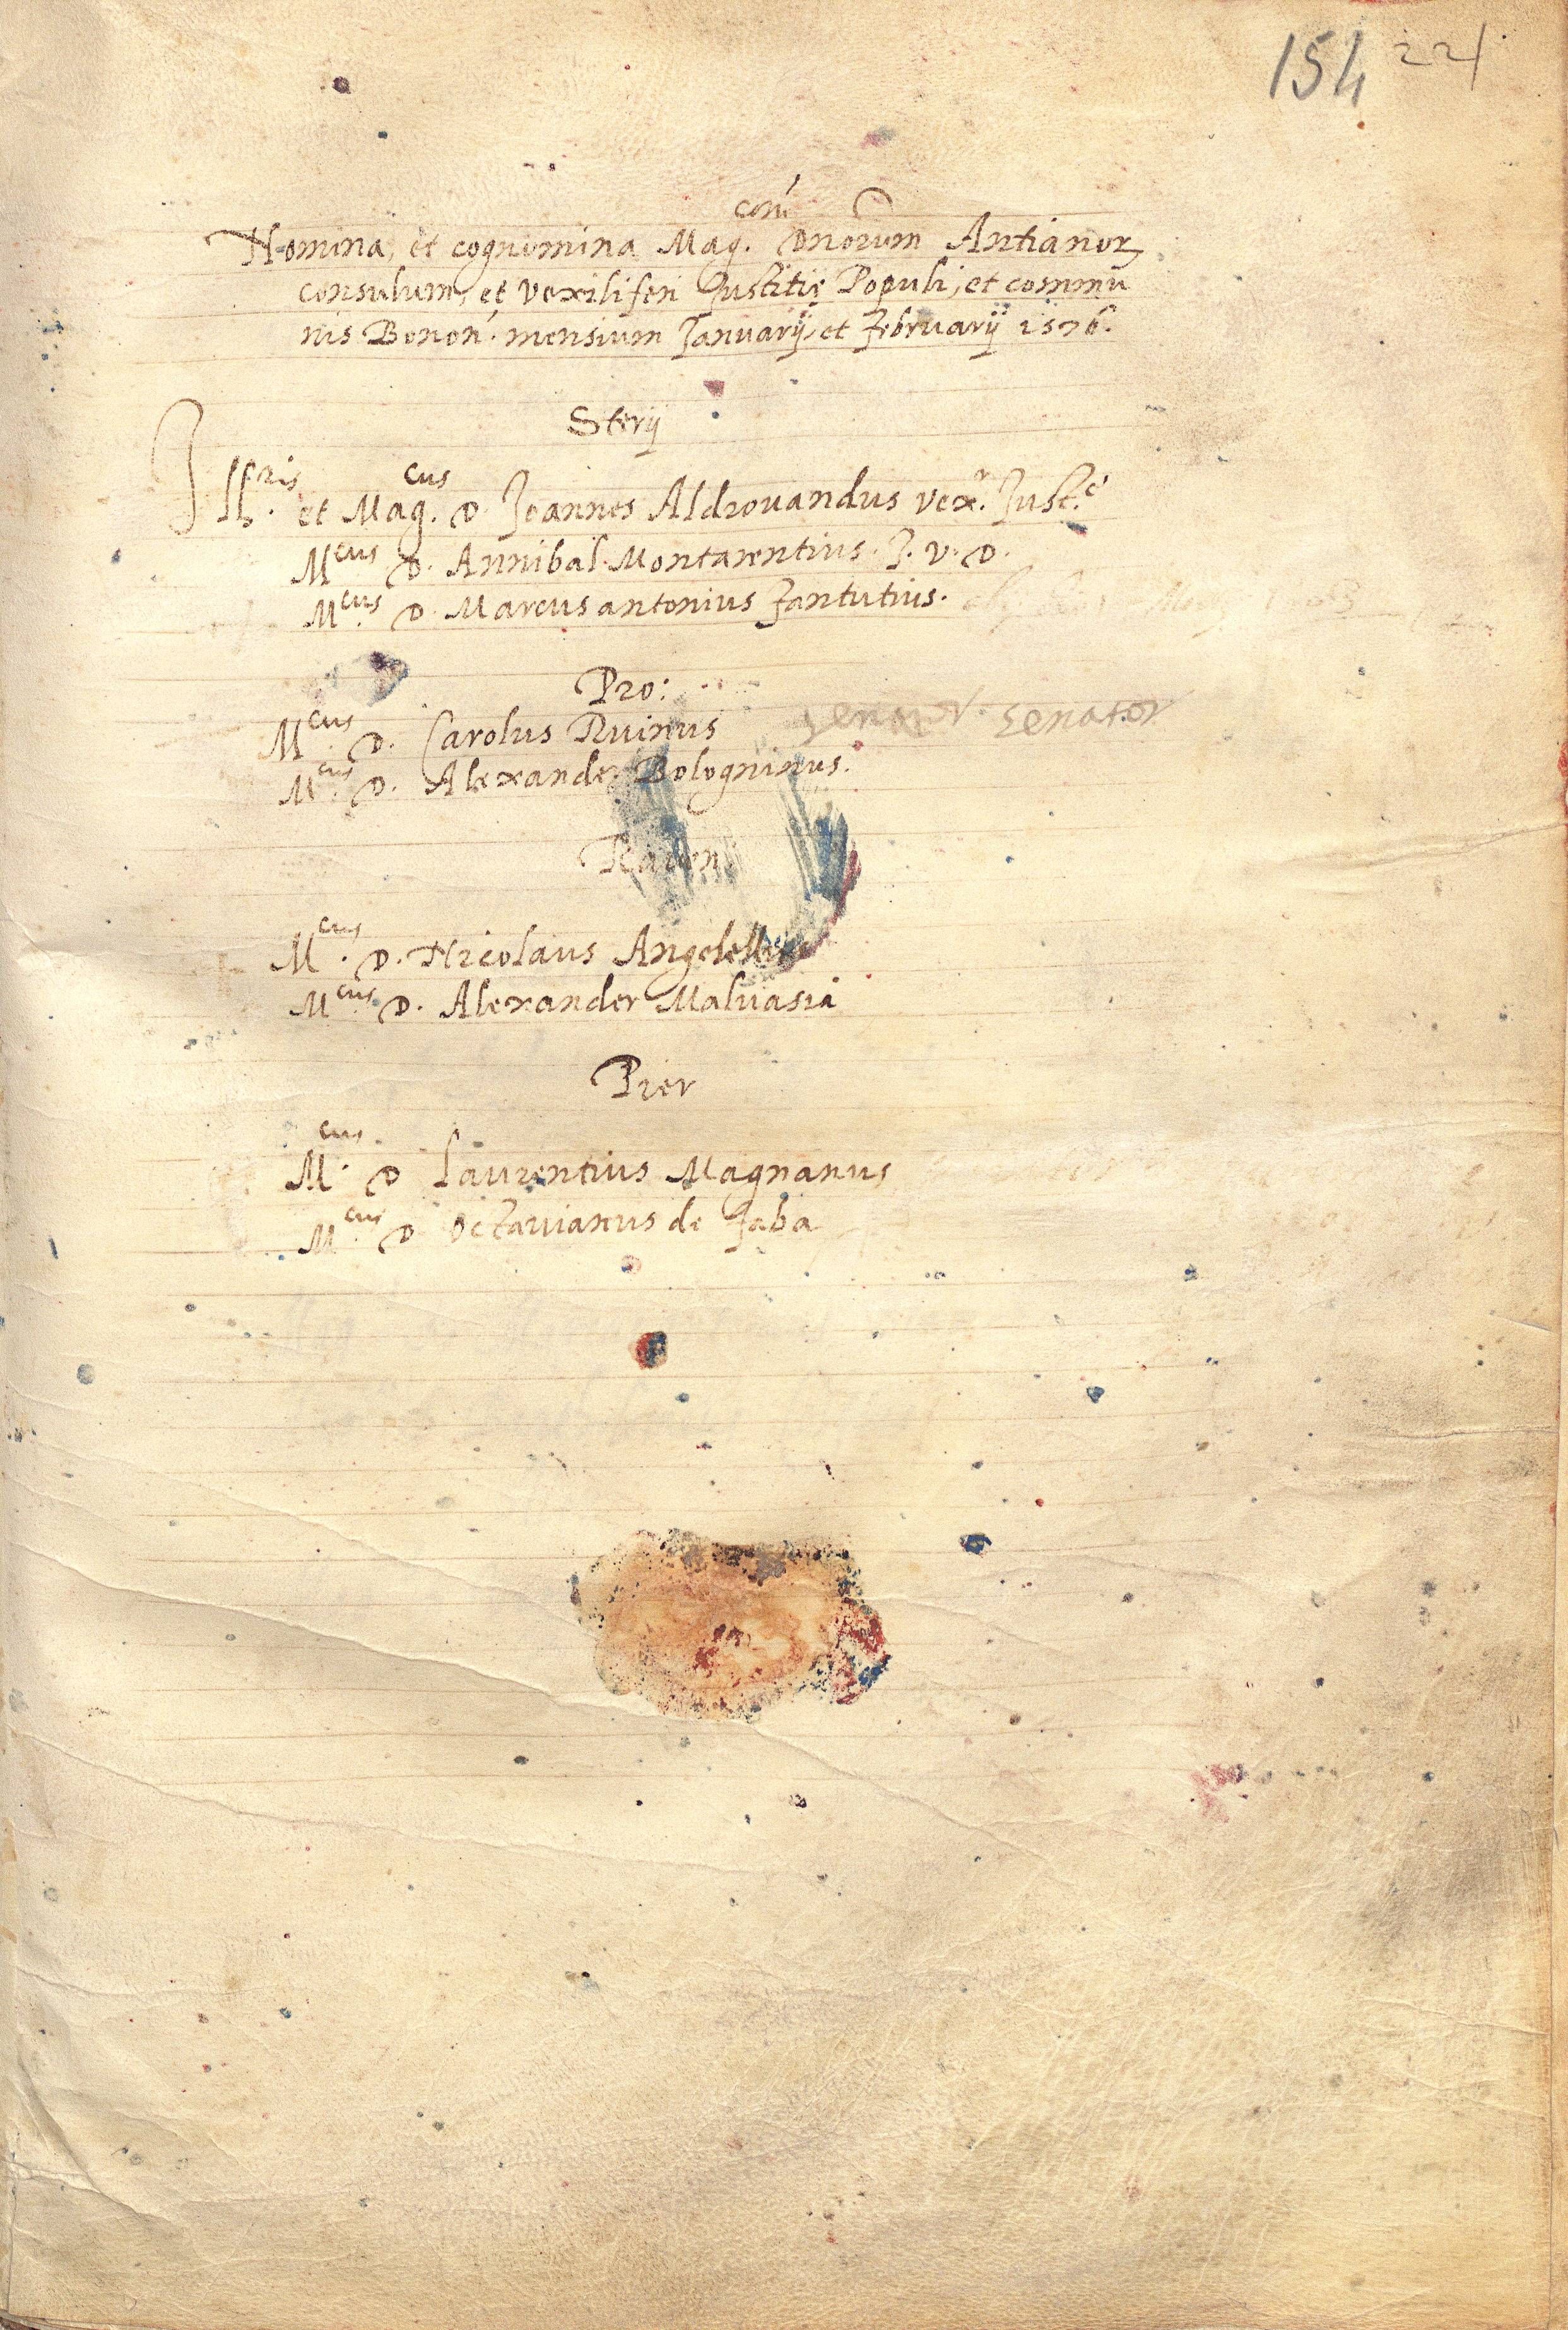 154 221
Nomina, et cognomina Mag.corū Dnorum Antianor
consulum, et vexiliferi Justitiẹ Populi, et commu
nis Bonon. mensium Januarij, et februarij 1576.
Sterij
Ill.ris et Mag.cus D Joannes Aldrovandus vex.r Just.e
M.cus D. Annibal Montarentius. J. V. D.
M.cus D. Marcus antonius fantutius.
Pro:
M.cus D. Carolus Ruinus senator senator
M.cus D. Alexander Bologninus.
Raven
M.cus D. Nicolaus Angelellus
M.cus D. Alexander Maluasia
Pier
M.cus D Laurentius Magnanus
M.cus D Octauianus de faba